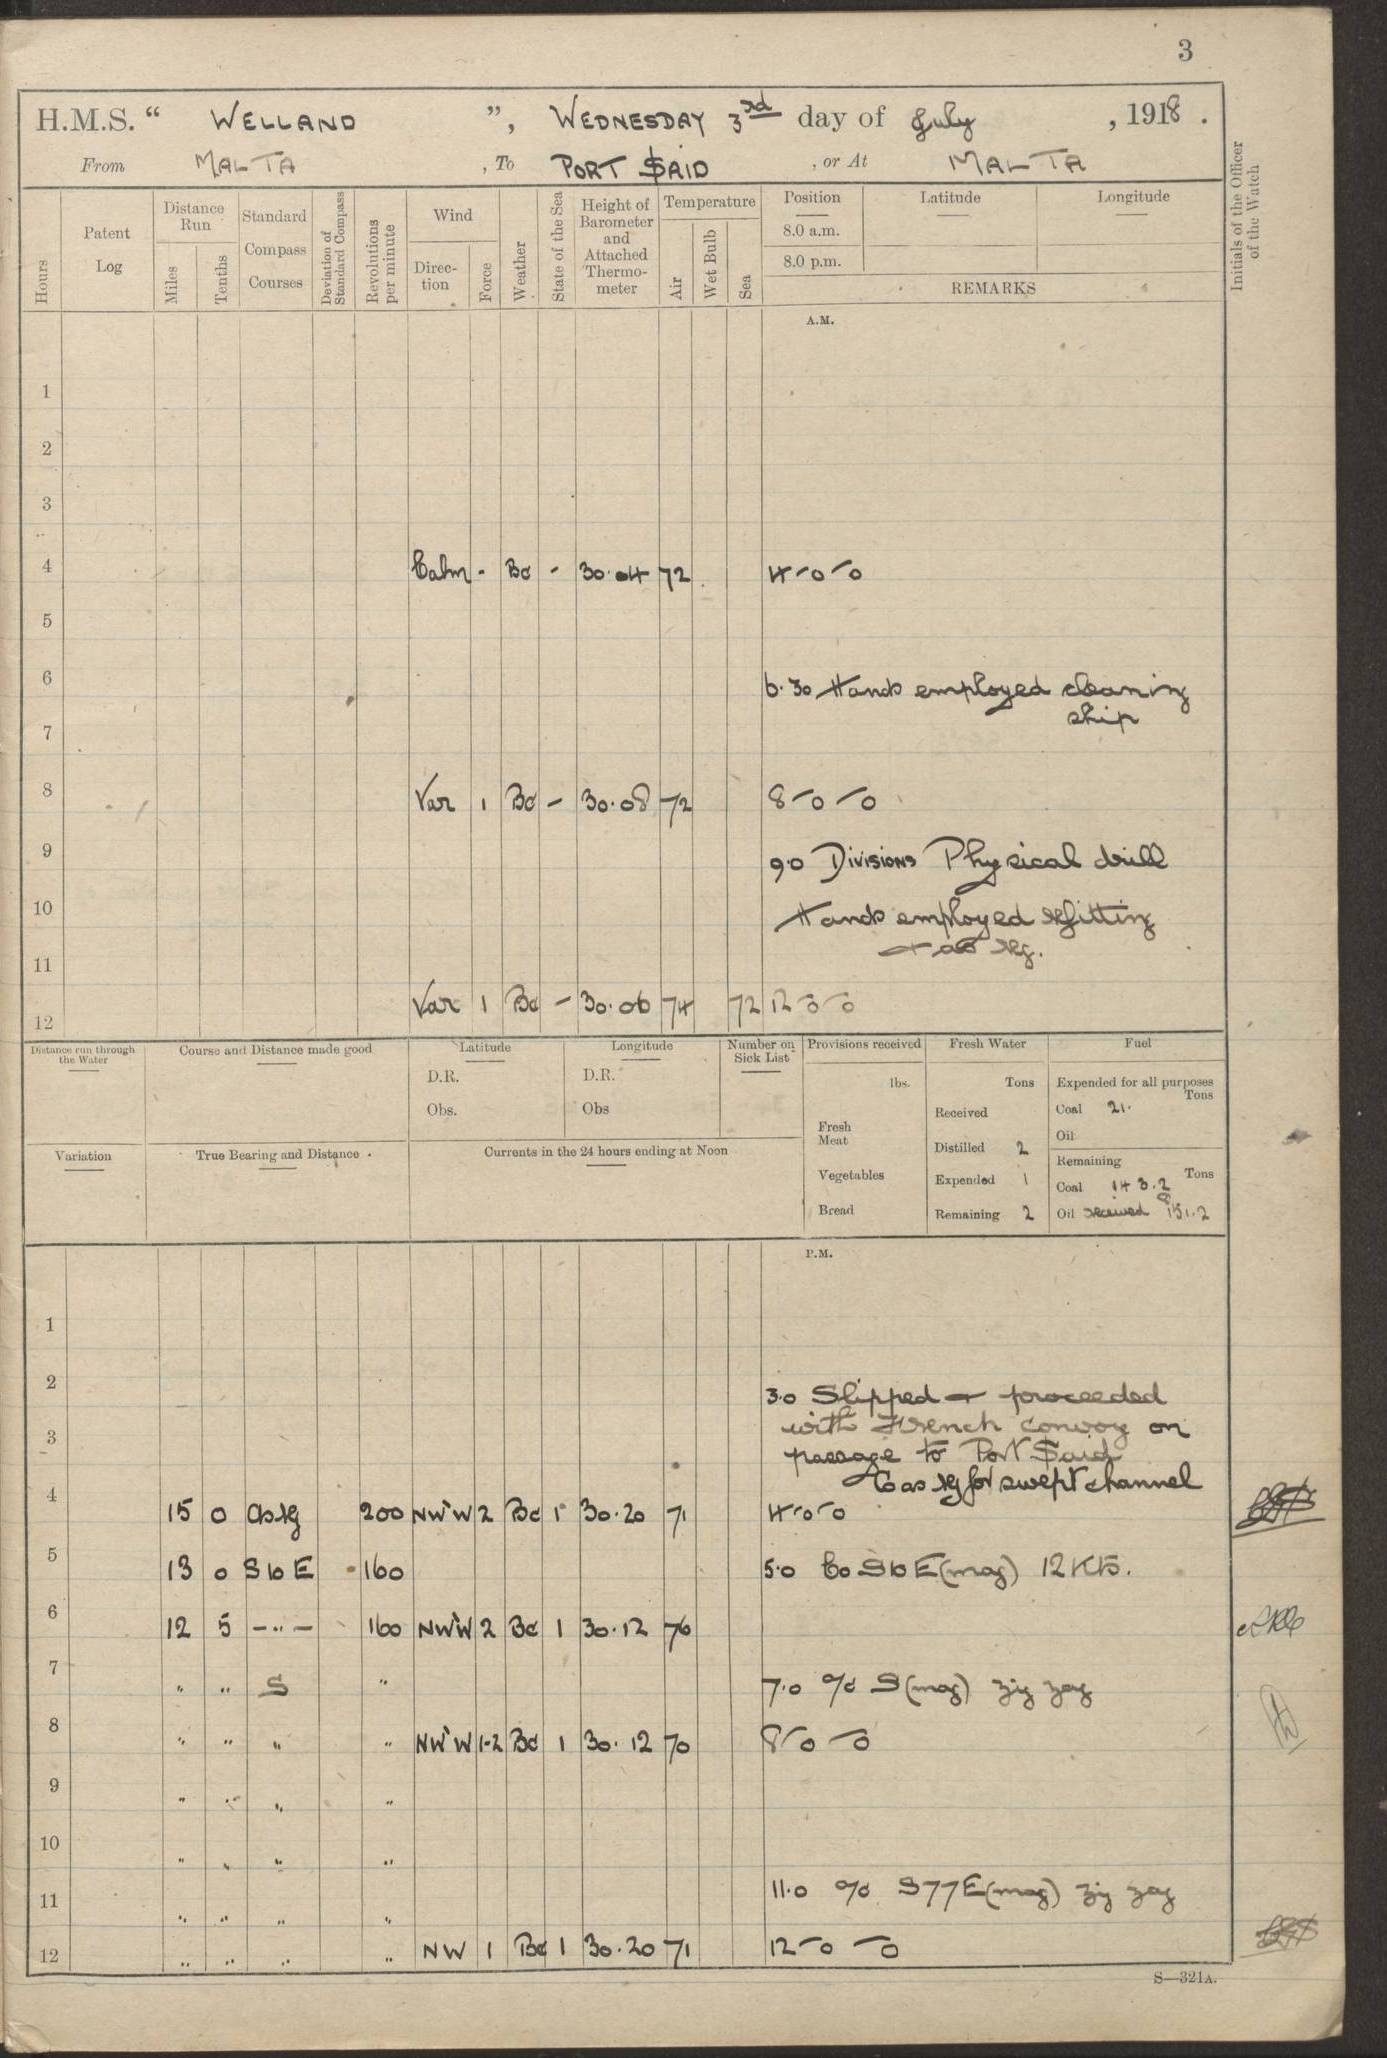 3
H.M.S. “ WELLAND ”, WEDNESDAY 3rd day of July , 1918 .
From MALTA , To PORT SAID , or At MALTA
Hours
Patent Log
Distance Run
Miles
Tenths
Standard Compass Courses
Deviation of Standard Compass
Revolutions per minute
Wind
Direction
Force
Weather
State of the Sea
Height of Barometer and Attached Thermometer
Temperature
Air
Wet Bulb
Sea
Position Latitude Longitude
8.0 a.m.
8.0 p.m.
REMARKS
Initials of the Officer of the Watch
A.M.
1
2
3
4 Calm - Bc - 30.04 72 4-0-0
5
6 6.30 Hands employed cleaning
ship
7
8 Var 1 Bc - 30.08 72 8-0-0
9 9.0 Divisions Physical drill
10 Hands employed refitting
+ as req.
11
12 Var 1 Bc - 30.06 74 72 12-0-0
Distance run through the Water
Course and Distance made good
Latitude
D.R.
Obs.
Longitude
D.R.
Obs
Number on Sick List
Provisions received
lbs.
Fresh Meat
Vegetables
Bread
Fresh Water
Tons
Received
Distilled 2
Expended 1
Remaining 2
Fuel
Expended for all purposes
Tons
Coal 21.
Oil
Remaining
Tons
Coal 143.2
8
Oil received 151.2
Variation
True Bearing and Distance
Currents in the 24 hours ending at Noon
P.M.
1
2
3.0 Slipped + proceeded
with French convoy on
3
passage to Port Said
Co as req for swept channel
4 15 0 As req 200 NW'W 2 Bc 1 30.20 71 4-0-0
5 13 0 S b E 160 5.0 Co S b E (mag) 12 Kts.
6 12 5 -"- 160 NW'W 2 Bc 1 30.12 76
7 " " S " 7.0 a/c S (mag) zig zag
8 " " " " NW'W 1-2 Bc 1 30.12 70 8-0-0
9 " " " "
10 " " " "
11.0 a/c S77E (mag) zig zag
11 " " " "
12 " " " " NW 1 Bc 1 30.20 71 12-0-0
S—321A.